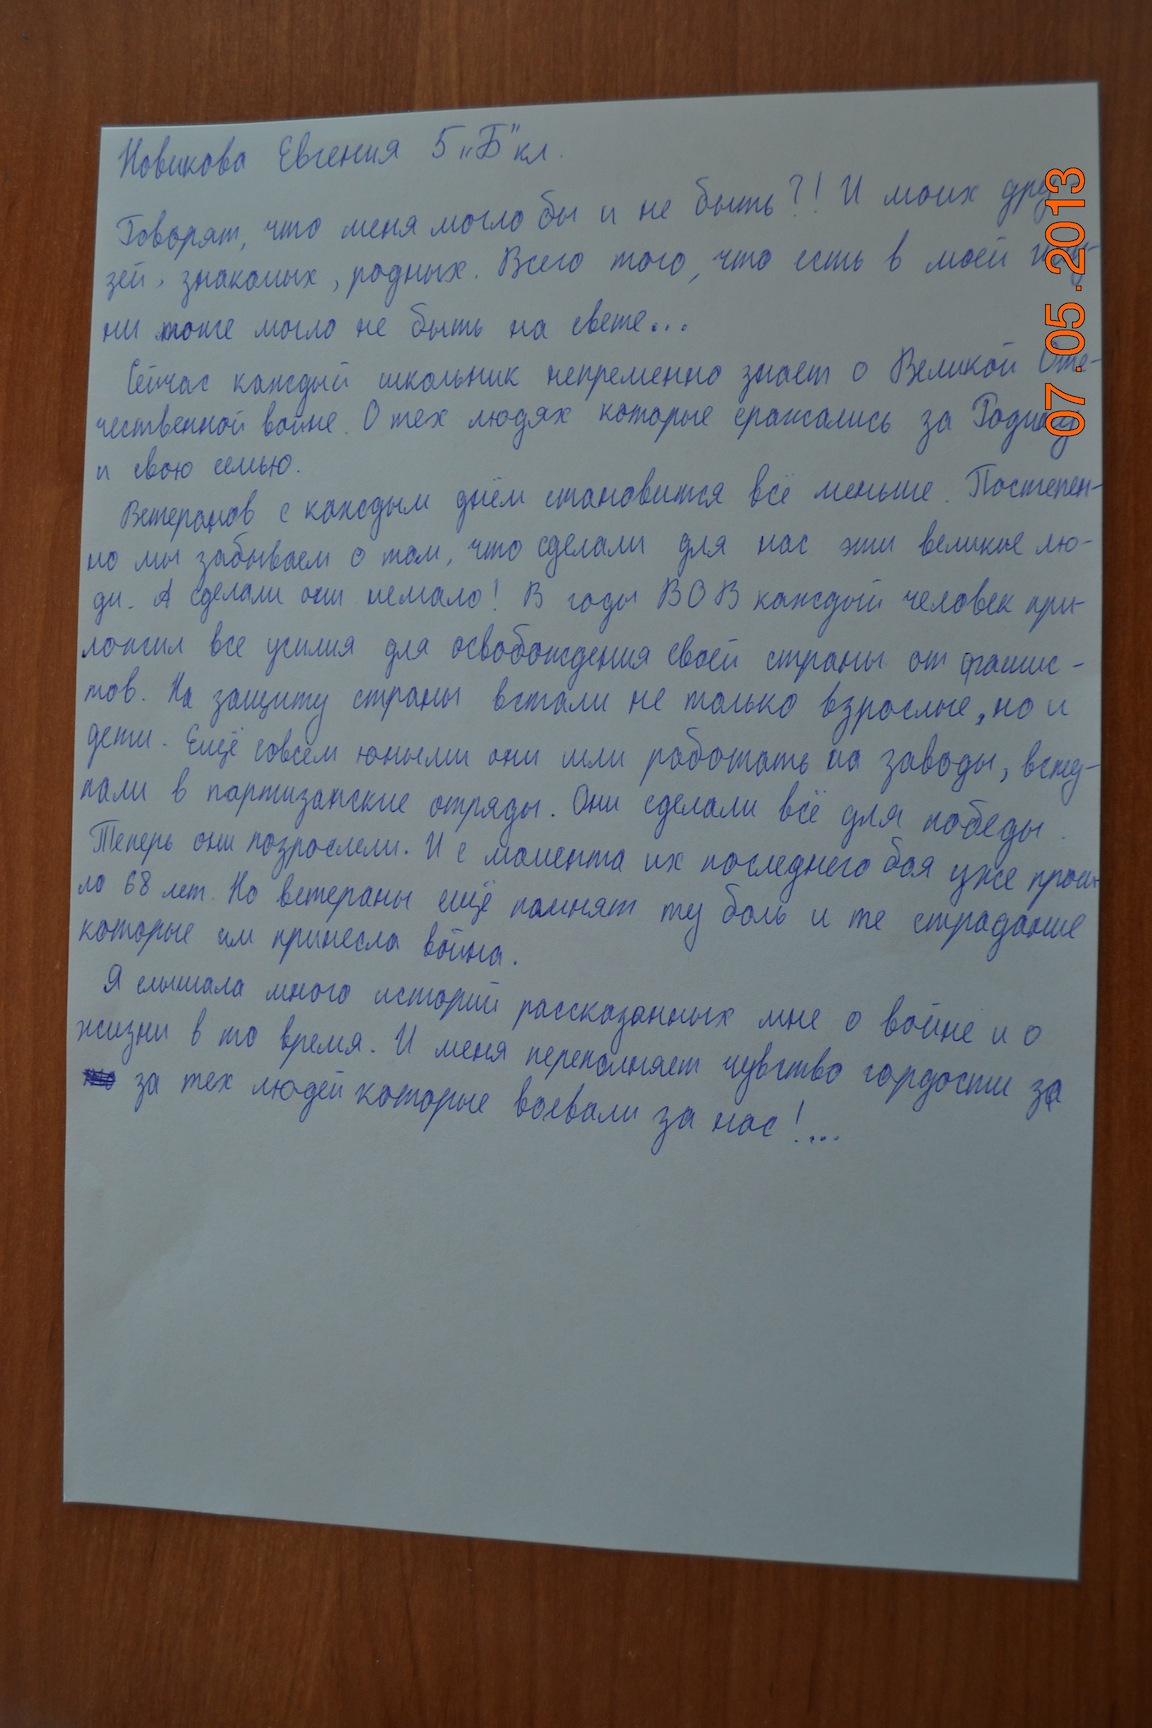 Новикова Евгения 5 „Б" кл.
Говорят, что меня могло бы и не быть?! И моих дру-
зей, знакомых, родных. Всего того, что есть в моей жиз-
ни тоже могло не быть на свете...
Сейчас каждый школьник непременно знает о Великой Оте-
чественной войне. О тех людях которые сражались за Родину
и свою семью.
Ветеранов с каждым днём становится всё меньше. Постепен-
но мы забываем о том, что сделали для нас эти великие лю-
ди. А сделали они немало! В годы ВОВ каждый человек при-
ложил все усилия для освобождения своей страны от фашис-
тов. На защиту страны встали не только взрослые, но и
дети. Ещё совсем юными они шли работать на заводы, всту-
пали в партизанские отряды. Они сделали всё для победы.
Теперь они позрослели. И с момента их последнего боя уже прош-
ло 68 лет. Но ветераны ещё помнят ту боль и те страдание
которые им принесла война.
Я слышала много историй рассказанных мне о войне и о
жизни в то время. И меня переполняет чувство гордости за
за тех людей которые воевали за нас!...
07.05.2013